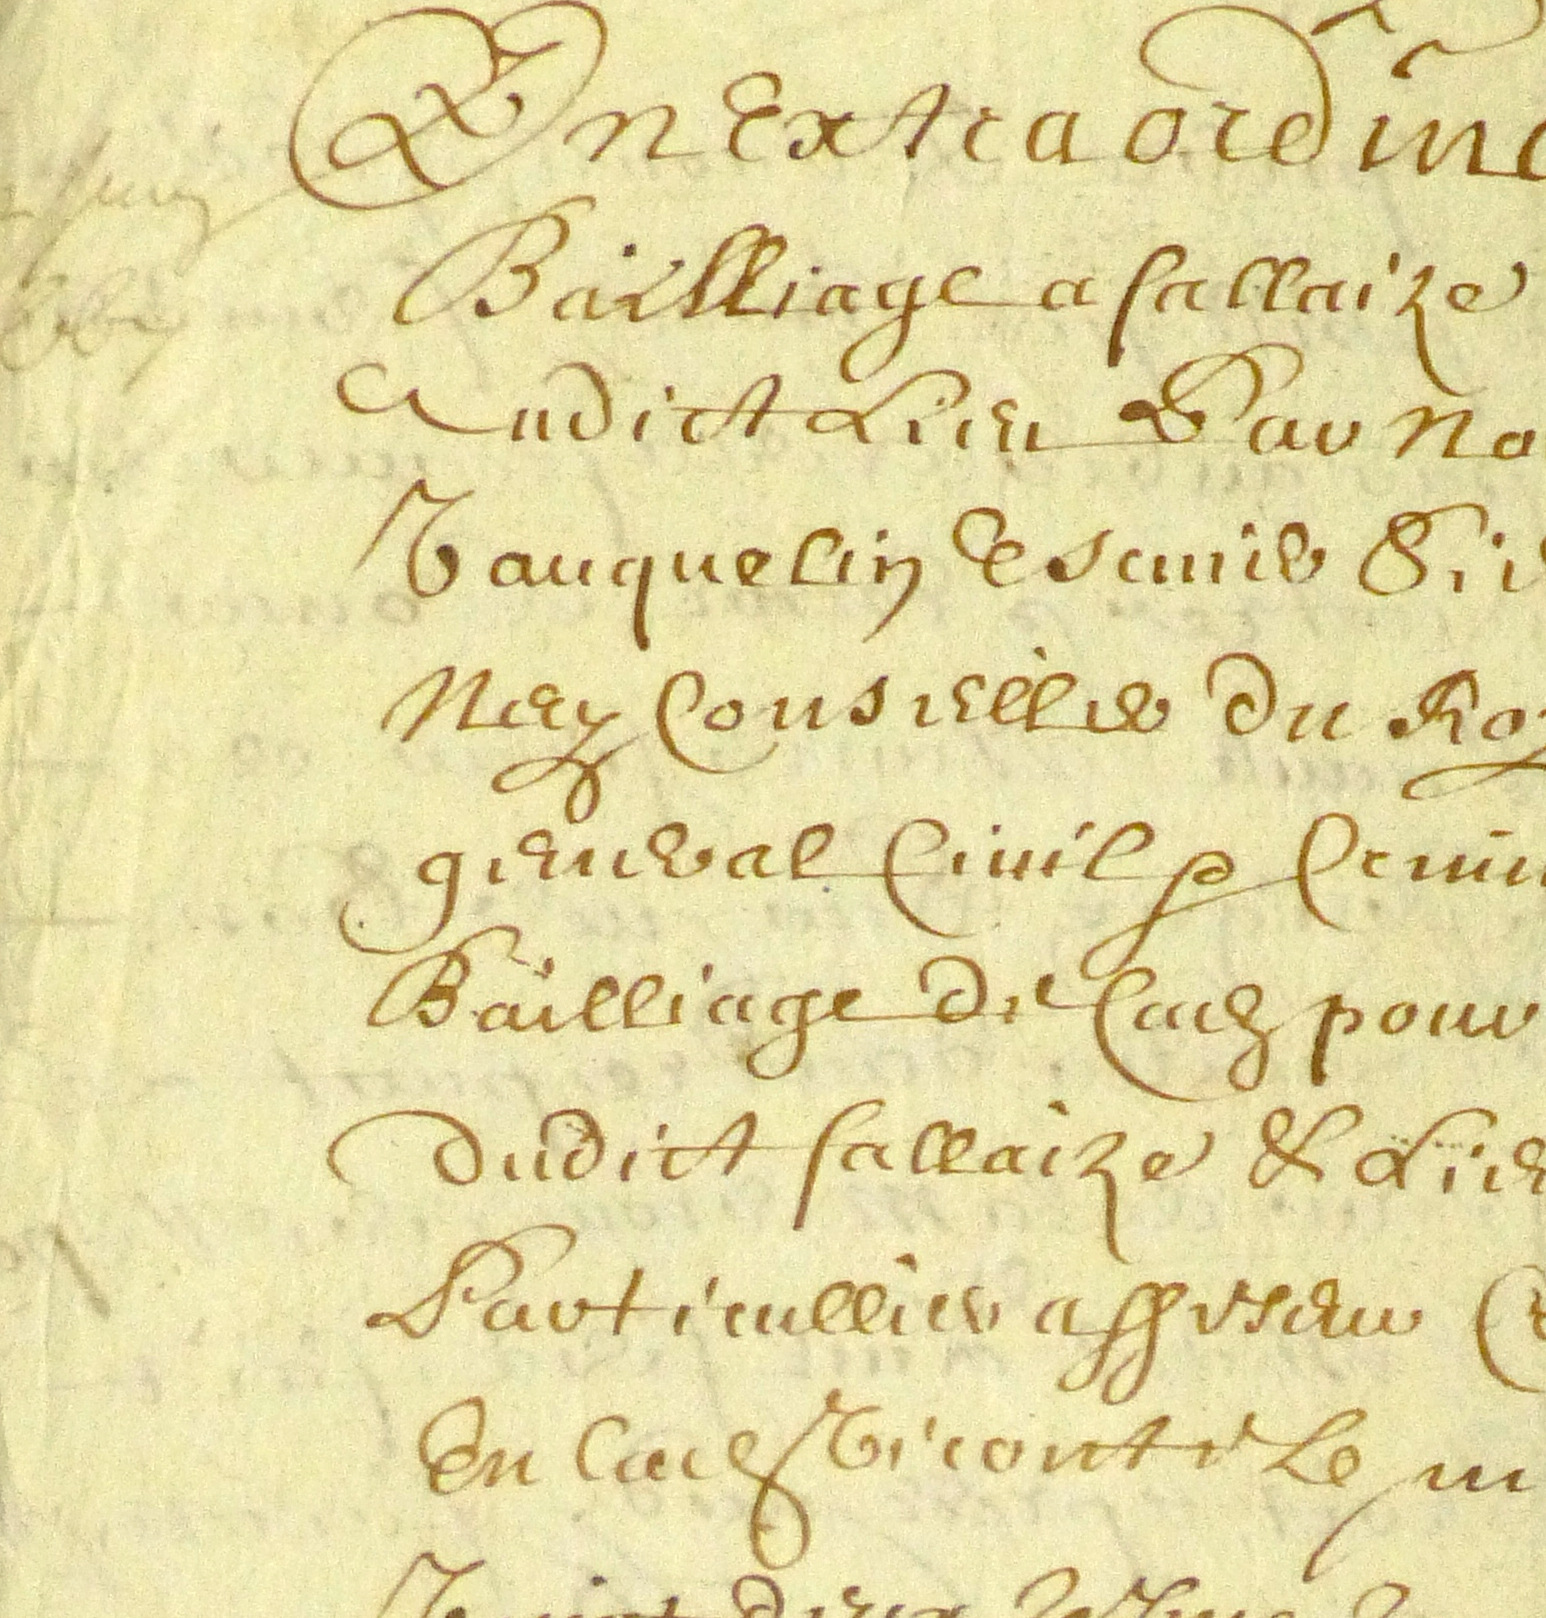 En Extraordine
Bailliage a fallaize
Audict Lieu Par No
Vauquelin Escuier Sie
Necy Conseiller du Roy
general Civil & Crimin
Bailliage de Caen pour
dudict fallaize & Lieu
Particullier assesseur C
En lad Viconté Le